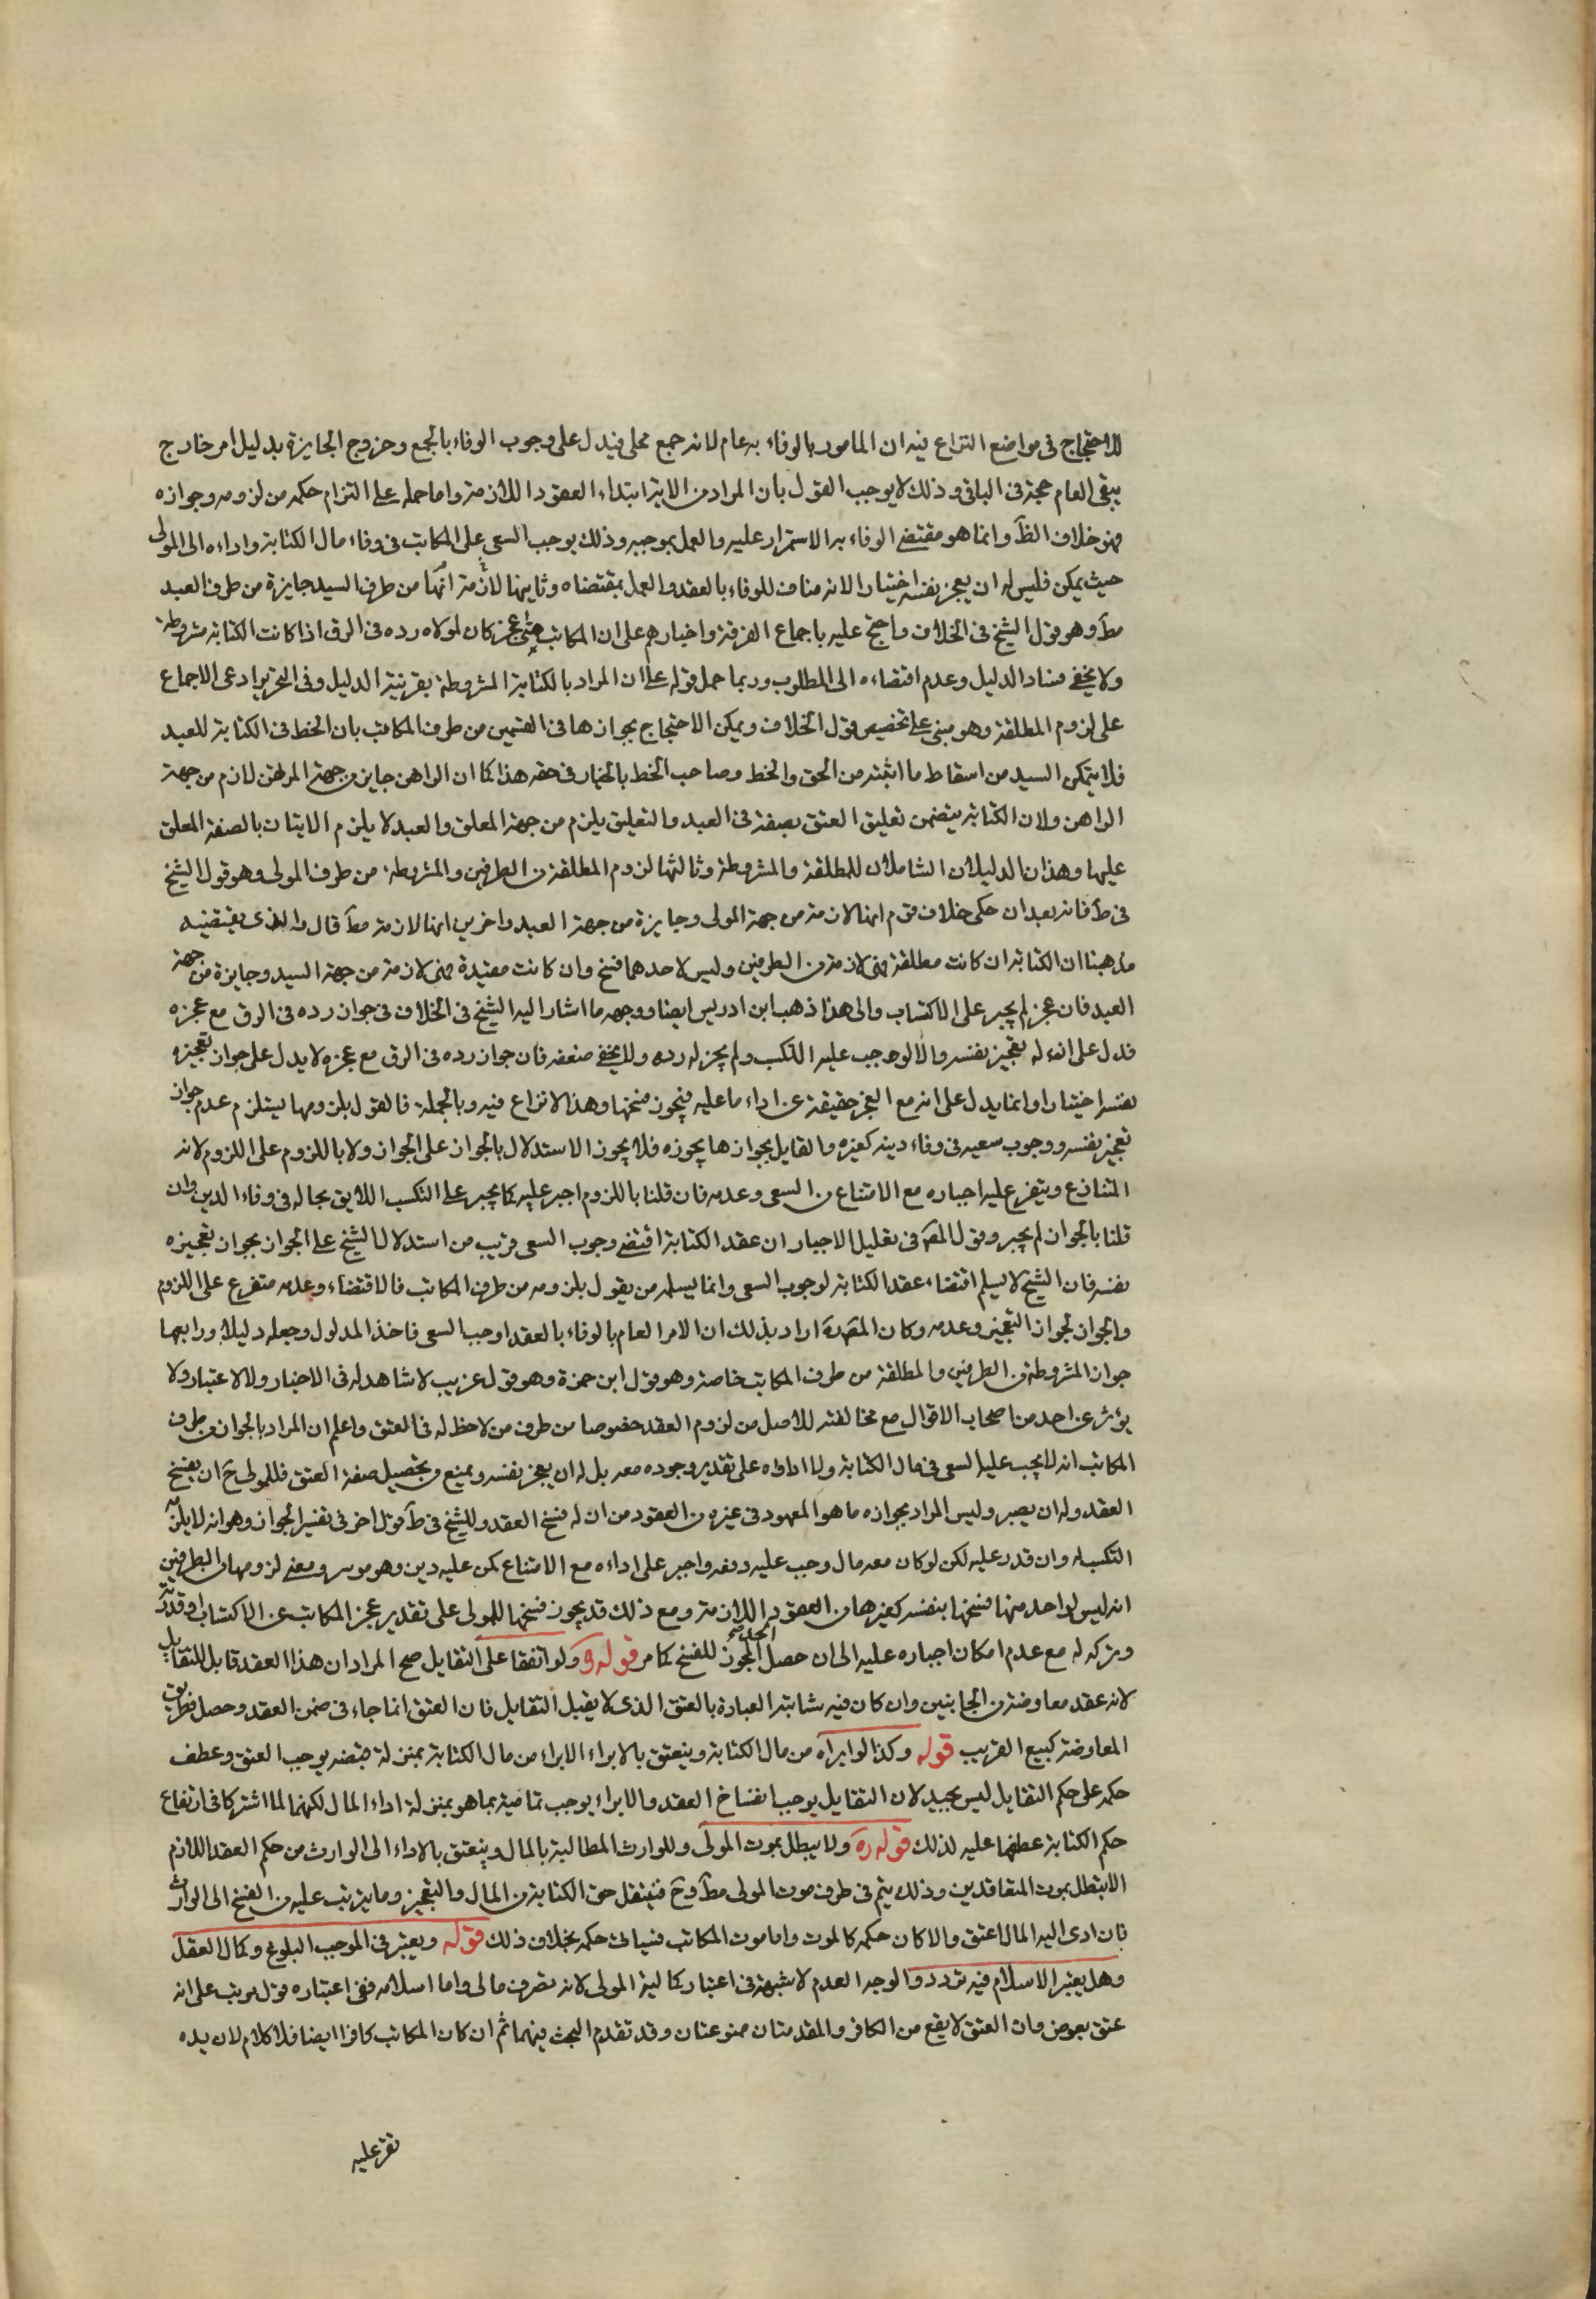 للاحتجاج فى مواضع النزاع فيه ان المامور بالوفاء به عام لانه جمع محلى فيدل على وجوب الوفاء بالجمع وخروج الجايزة بدليل امر خارج
يبقى العام حجة فى الباقى وذلك لا يوجب القول بان المراد من الاية ابتداء العقود اللازمة واما حمله على التزام حكمه من لزومه وجوازه
فهو خلاف الظَ وانما هو مقتضى الوفاء به الاستمرار عليه والعمل بموجبه وذلك يوجب السعى على المكاتب فى وفاء مال الكتابة واداءه الى المولى
حيث يمكن فليس له ان يعجز نفسه اختيارا لانه مناف للوفاء بالعقد والعمل بمقتضاه وثانيها لازمة انها من طرف السيد جايزة من طرف العبد
مطَ وهو قول الشيخ فى الخلاف واحتج عليه باجماع الفرقة واخبارهم على ان المكاتب متى عجز كان لمولاه رده فى الرق اذا كانت الكتابة مشروطة
ولا يخفى فساد الدليل وعدم اقتضاءه الى المطلوب وربما حمل قوله على ان المراد بالكتابة المشروطة بقرينة الدليل وفى التحرير ادعى الاجماع
على لزوم المطلقة وهو مبنى على تخصيص قول الخلاف ويمكن الاحتجاج بجوازها فى القسمين من طرف المكاتب بان الحظ فى الكتابة للعبد
فلا يتمكن السيد من اسقاط ما اثبته من الحق والحظ وصاحب الحظ بالخيار فى حقه هذا كما ان الراهن جايز من جهة المرتهن لازم من جهة
الراهن ولان الكتابة يتضمن تعليق العتق بصفة فى العبد والتعليق يلزم من جهة المعلق والعبد لا يلزم الاتيان بالصفة المعلق
عليها وهذان الدليلان الشاملان للمطلقة والمشروطة وثالثها لزوم المطلقة من الطرفين والمشروطة من طرف المولى وهو قول الشيخ
فى طَ فانه بعد ان حكى خلاف قوم انها لازمة من جهة المولى وجايزة من جهة العبد واخرين انها لازمة مطَ قال والذى يقتضيه
مذهبنا ان الكتابة ان كانت مطلقة فهى لازمة من الطرفين وليس لاحدهما فسخ وان كانت مقيدة فهى لازمة من جهة السيد وجايزة من جهة
العبد فان عجز لم يجبر على الاكتساب والى هذا ذهب ابن ادريس ايضا ووجهه ما اشار اليه الشيخ فى الخلاف فى جواز رده فى الرق مع عجزه
فدل على ان له تعجيز نفسه والا لوجب عليه التكسب ولم يجز له رده ولا يخفى ضعفه فان جواز رده فى الرق مع عجزه لا يدل على جواز تعجيزه
نفسه اختيارا وانما يدل على انه مع العجز حقيقة عن اداء ما عليه فيجوز فسخها وهذا لا نزاع فيه وبالجملة فالقول بلزومها يستلزم عدم جواز
تعجيز نفسه ووجوب سعيه فى وفاء دينه كغيره والقايل بجوازها يجوزه فلا يجوز الاستدلال بالجواز على الجواز ولا باللزوم على اللزوم لانه
المتنازع ويتفرع عليه اجباره مع الامتناع من السعى وعدمه فان قلنا باللزوم اجبر عليه كما يجبر على التكسب اللايق بحاله فى وفاء الدين وان
قلنا بالجواز لم يجبر وقول المصَ فى تعليل الاجبار ان عقد الكتابة اقتضى وجوب السعى قريب من استدلال الشيخ على الجواز بجواز تعجيزه
نفسه فان الشيخ لا يسلم اقتضاء عقد الكتابة لوجوب السعى وانما يسلمه من يقول بلزومه من طرف المكاتب فالاقتضاء وعدمه متفرع على اللزوم
والجواز لجواز التعجيز وعدمه وكان المصَ ره اراد بذلك ان الامر العام بالوفاء بالعقد اوجب السعى فاخذ المدلول وجعله دليلا ورابعها
جواز المشروطة من الطرفين والمطلقة من طرف المكاتب خاصة وهو قول ابن حمزة وهو قول غريب لا شاهد له فى الاخبار ولا الاعتبار ولا
يؤثر عن احد من اصحاب الاقوال مع مخالفته للاصل من لزوم العقد خصوصا من طرف من لاحظ له فى العتق واعلم ان المراد بالجواز من طرف
المكاتب انه لا يجب عليه السعى فى مال الكتابة ولا اداؤه على تقدير وجوده معه بل له ان يعجز نفسه ويمنع من تحصيل صفة العتق فللمولى حَ ان يفسخ
العقد وله ان يصبر وليس المراد بجوازه ما هو المعهود فى غيره من العقود من ان له فسخ العقد وللشيخ فى طَ قول اخر فى تفسير الجواز وهو انه لا يلزمه
التكسب له وان قدر عليه لكن لو كان معه مال وجب عليه دفعه واجبر على اداءه مع الامتناع كمن عليه دين وهو موسر ومعنى لزومها من الطرفين
انه ليس لواحد منهما فسخها بنفسه كغيرها من العقود اللازمة ومع ذلك قد يجوز فسخها للمولى على تقدير عجز المكاتب عن الاكتساب او قدرته
وتركه له مع عدم امكان اجباره عليه الى ان حصل المجوز للفسخ كما مر قوله ره ولو اتفقا على التقايل صح المراد ان هذا العقد قابل للتقايل
لانه عقد معاوضة من الجانبين وان كان فيه شائبة العبادة بالعتق الذى لا يقبل التقايل فان العتق انما جاء فى ضمن العقد وحصل بطريق
المعاوضة كبيع القريب قوله وكذا لو ابراه من مال الكتابة وينعتق بالابراء الابراء من مال الكتابة بمنزلة قبضه يوجب العتق وعطف
حكمه على حكم التقايل ليس بجيد لان التقايل يوجب انفساخ العقد والابراء يوجب تماميته بما هو بمنزلة اداء المال لكنهما لما اشتركا فى ارتفاع
حكم الكتابة عطفها عليه لذلك قوله ره ولا يبطل بموت المولى وللوارث المطالبة بالمال وينعتق بالاداء الى الوارث من حكم العقد اللازم
الا يبطل بموت المتعاقدين وذلك يتم فى طرف موت المولى مطَ وحَ فينتقل حق الكتابة من المال والتعجيز وما يترتب عليه من الفسخ الى الوارث
فان ادى اليه المال اعتق والا كان حكمه كالموت واما موت المكاتب فسياتى حكمه بخلاف ذلك قوله ويعتبر فى الموجب البلوغ وكمال العقل
وهل يعتبر الاسلام فيه تردد والوجه العدم لا شبهة فى اعتبار كمالية المولى لانه تصرف مالى واما اسلامه ففى اعتباره قول مرتب على انه
عتق بعوض وان العتق لا يقع من الكافر والمقدمتان ممنوعتان وقد تقدم البحث فيهما ثم ان كان المكاتب كافرا ايضا فلا كلام لان يده